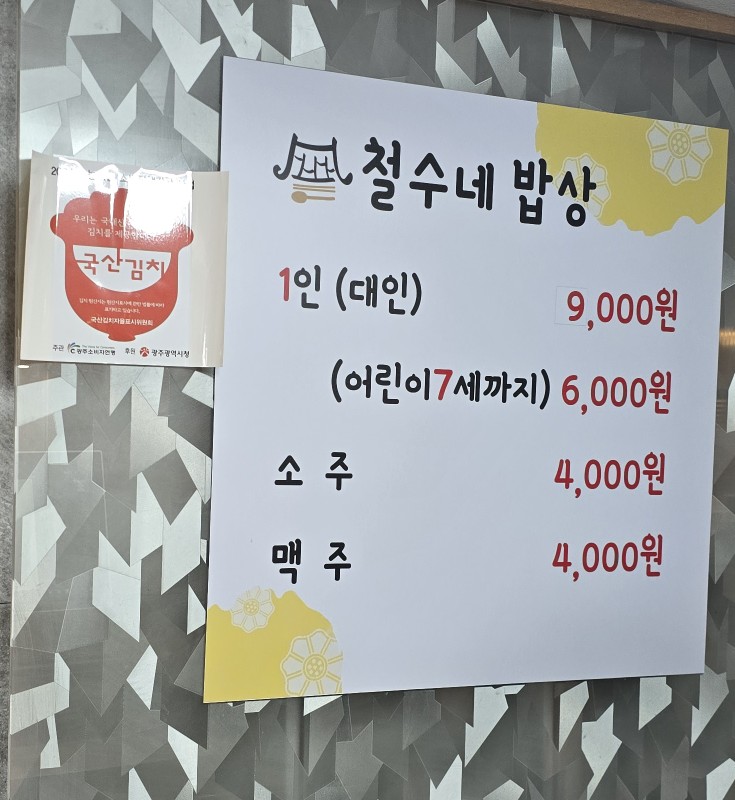 철수네 밥상
1인 (대인) 9,000원
(어린이7세까지) 6,000원
소 주 4,000원
맥 주 4,000원
우리는 국내산
김치를
국산김치
표시하고 있습니다.
국산김치자율표시위원회
주관 광주소비자연맹 후원 광주광역시청